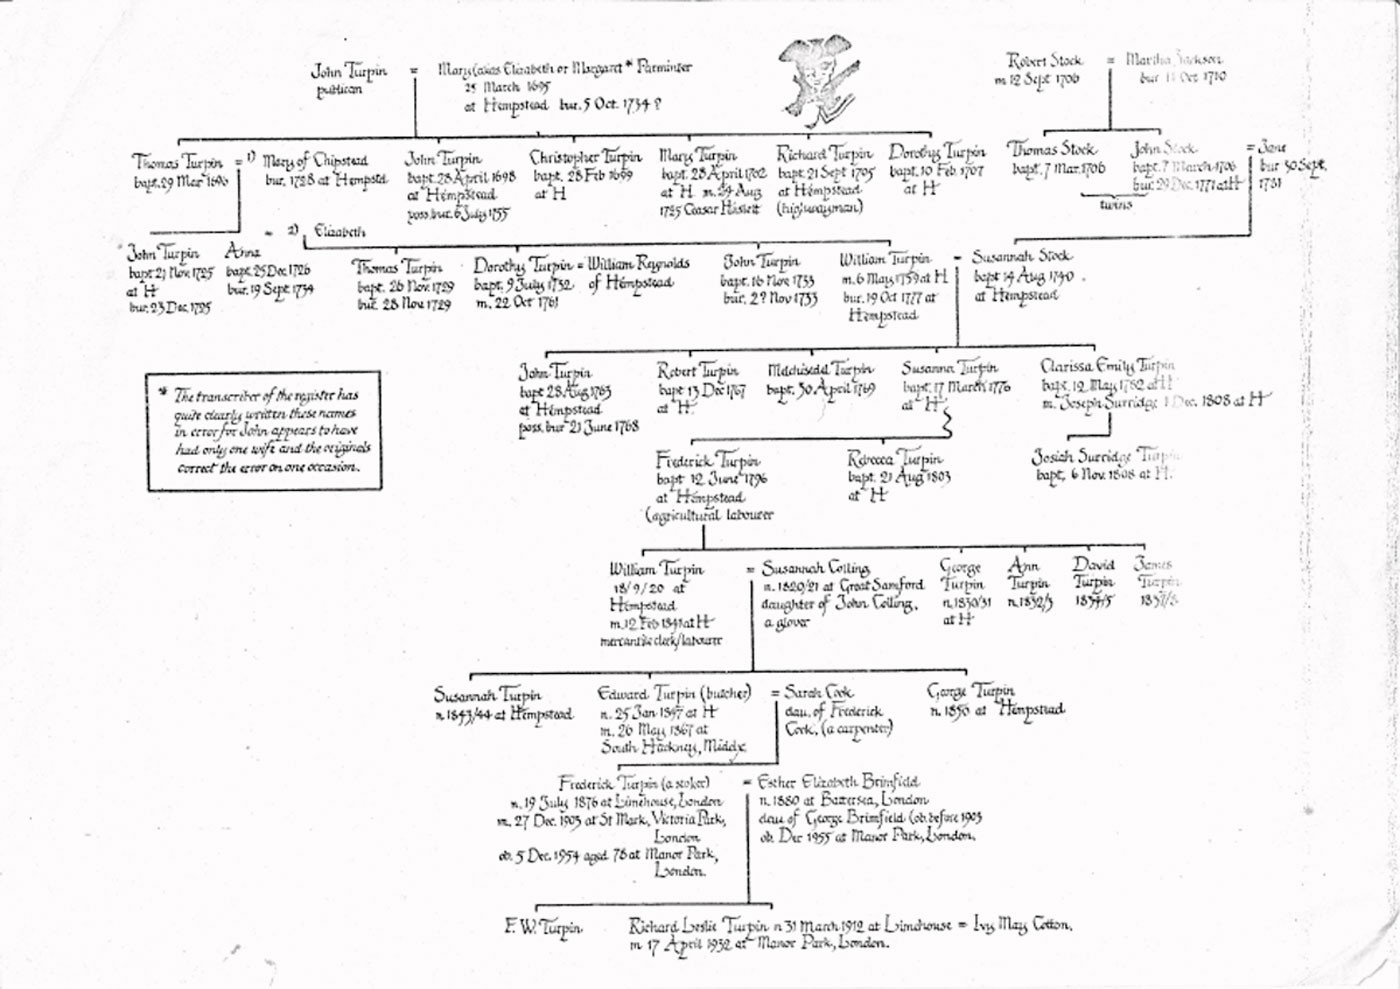 John Turpin = Mary (alias Elizabeth or Margaret* Parminter
publican 25 March 1695
at Hempstead bur. 5 Oct. 1734 ?
Robert Stock = Martha Jackson
m 12 Sept 1706 bur 11 Oct 1710
Thomas Turpin = 1) Mary of Chipstead
bapt. 29 Mar 1696 bur. 1728 at Hempstd
John Turpin
bapt 28 April 1698
at Hempstead
poss. bur. 6 July 1755
Christopher Turpin
bapt. 28 Feb 1699
at H
Mary Turpin
bapt. 28 April 1702
at H m. 24 Aug
1725 Ceasar
Richard Turpin
bapt. 21 Sept 1705
at Hempstead
(highwayman)
Dorothy Turpin
bapt. 10 Feb. 1707
at H
Thomas Stock
bapt. 7 Mar. 1706
John Stock
bapt. 7 March 1706
bur. 29 Dec. 1771 at H
twins
= Jane
bur 30 Sept.
1781
= 2) Elizabeth
John Turpin
bapt 21 Nov. 1725
at H
bur. 23 Dec. 1725
Anne
bapt. 25 Dec 1726
bur. 19 Sept. 1734
Thomas Turpin
bapt. 26 Nov. 1729
bur. 28 Nov. 1729
Dorothy Turpin = William Reynolds
bapt. 9 July 1732 of Hempstead
m. 22 Oct 1761
John Turpin
bapt. 16 Nov 1733
bur. 2? Nov 1733
William Turpin = Susannah Stock
m. 6 May 1759 at H bapt 14 Aug 1740
bur. 19 Oct 1777 at at Hempstead
Hempstead
John Turpin
bapt 28 Aug 1763
at Hempstead
poss. bur 21 June 1768
Robert Turpin
bapt 13 Dec 1767
at H
Turpin
bapt. 30 April 1769
Susanna Turpin
bapt. 17 March 1776
at H
Clarissa Emily Turpin
bapt. 12 May 1782 at H
m. Joseph Surridge 1 Dec. 1808 at H
* The transcriber of the register has
quite clearly written these names
in error for John appears to have
had only one wife and the originals
correct the error on one occasion.
Frederick Turpin
bapt 12 June 1796
at Hempstead
(agricultural labourer
Rebecca Turpin
bapt. 21 Aug 1803
at H
Josiah Surridge Turpin
bapt. 6 Nov. 1808 at H.
William Turpin = Susannah Colling
18/9/20 at n. 1820/21 at Great Samford
Hempstead daughter of John Colling,
m. 12 Feb 1841 at H a glover
mercantile clerk/labourer
George
Turpin
n. 1830/31
at H
Ann
Turpin
n. 1832/3
David
Turpin
1834/5
James
Turpin
1837/8
Susannah Turpin
n. 1843/44 at Hempstead
Edward Turpin (butcher) = Sarah Cook
n. 25 Jan 1847 at H dau. of Frederick
m. 26 May 1867 at Cook, (a carpenter)
South Hackney, Middx
George Turpin
n. 1850 at Hempstead
Frederick Turpin (a stoker) = Esther Elizabeth Brimfield
n. 19 July 1876 at Limehouse, London n. 1880 at Battersea, London
m. 27 Dec. 1903 at St Mark, Victoria Park, dau of George Brimfield (ob. before 1903
London ob. Dec 1955 at Manor Park, London.
ob. 5 Dec. 1954 aged 78 at Manor Park,
London.
F. W. Turpin
Richard Leslie Turpin n 31 March 1912 at Limehouse = Ivy May Cotton.
m 17 April 1932 at Manor Park, London.